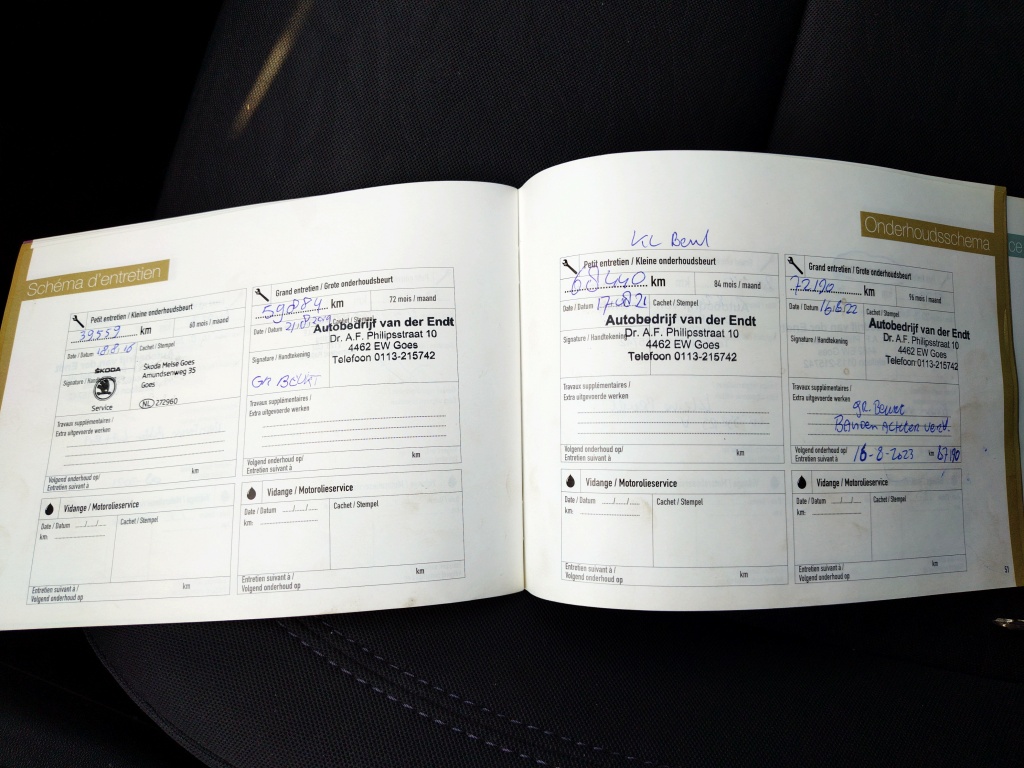 Schéma d'entretien
Petit entretien / Kleine onderhoudsbeurt
39559 km
60 mois / maand
Date / Datum 18.8.16
Cachet / Stempel
ŠKODA
Service
Skoda Melse Goes
Amundsenweg 35
Goes
NL 272960
Signature / Hand
Travaux supplémentaires /
Extra uitgevoerde werken
Volgend onderhoud op/
Entretien suivant à
km
Vidange / Motorolieservice
Date / Datum .../.../...
km:
Cachet / Stempel
Entretien suivant à /
Volgend onderhoud op
km
Grand entretien / Grote onderhoudsbeurt
59084 km
72 mois / maand
Date / Datum
Autobedrijf van der Endt
Dr. A.F. Philipsstraat 10
4462 EW Goes
Telefoon 0113-215742
Signature / Handtekening
Gr Beurt
Travaux supplémentaires /
Extra uitgevoerde werken
Volgend onderhoud op/
Entretien suivant à
km
Vidange / Motorolieservice
Date / Datum .../.../...
km:
Cachet / Stempel
Entretien suivant à /
Volgend onderhoud op
km
Onderhoudsschema
KL Beurt
Petit entretien / Kleine onderhoudsbeurt
68440 km
84 mois / maand
Date / Datum
Cachet / Stempel
Autobedrijf van der Endt
Dr. A.F. Philipsstraat 10
4462 EW Goes
Telefoon 0113-215742
Signature / Handtekening
Travaux supplémentaires /
Extra uitgevoerde werken
Volgend onderhoud op/
Entretien suivant à
km
Vidange / Motorolieservice
Date / Datum .../.../...
km:
Cachet / Stempel
Entretien suivant à /
Volgend onderhoud op
km
Grand entretien / Grote onderhoudsbeurt
72190 km
96 mois / maand
Date / Datum
Cachet / Stempel
Autobedrijf van der Endt
Dr. A.F. Philipsstraat 10
4462 EW Goes
Telefoon 0113-215742
Signature / Handtekening
Travaux supplémentaires /
Extra uitgevoerde werken
gr. Beurt
Banden Achter verv.
Volgend onderhoud op/
Entretien suivant à
16-8-2023 km 87190
Vidange / Motorolieservice
Date / Datum .../.../...
km:
Cachet / Stempel
Entretien suivant à /
Volgend onderhoud op
km
51
ce